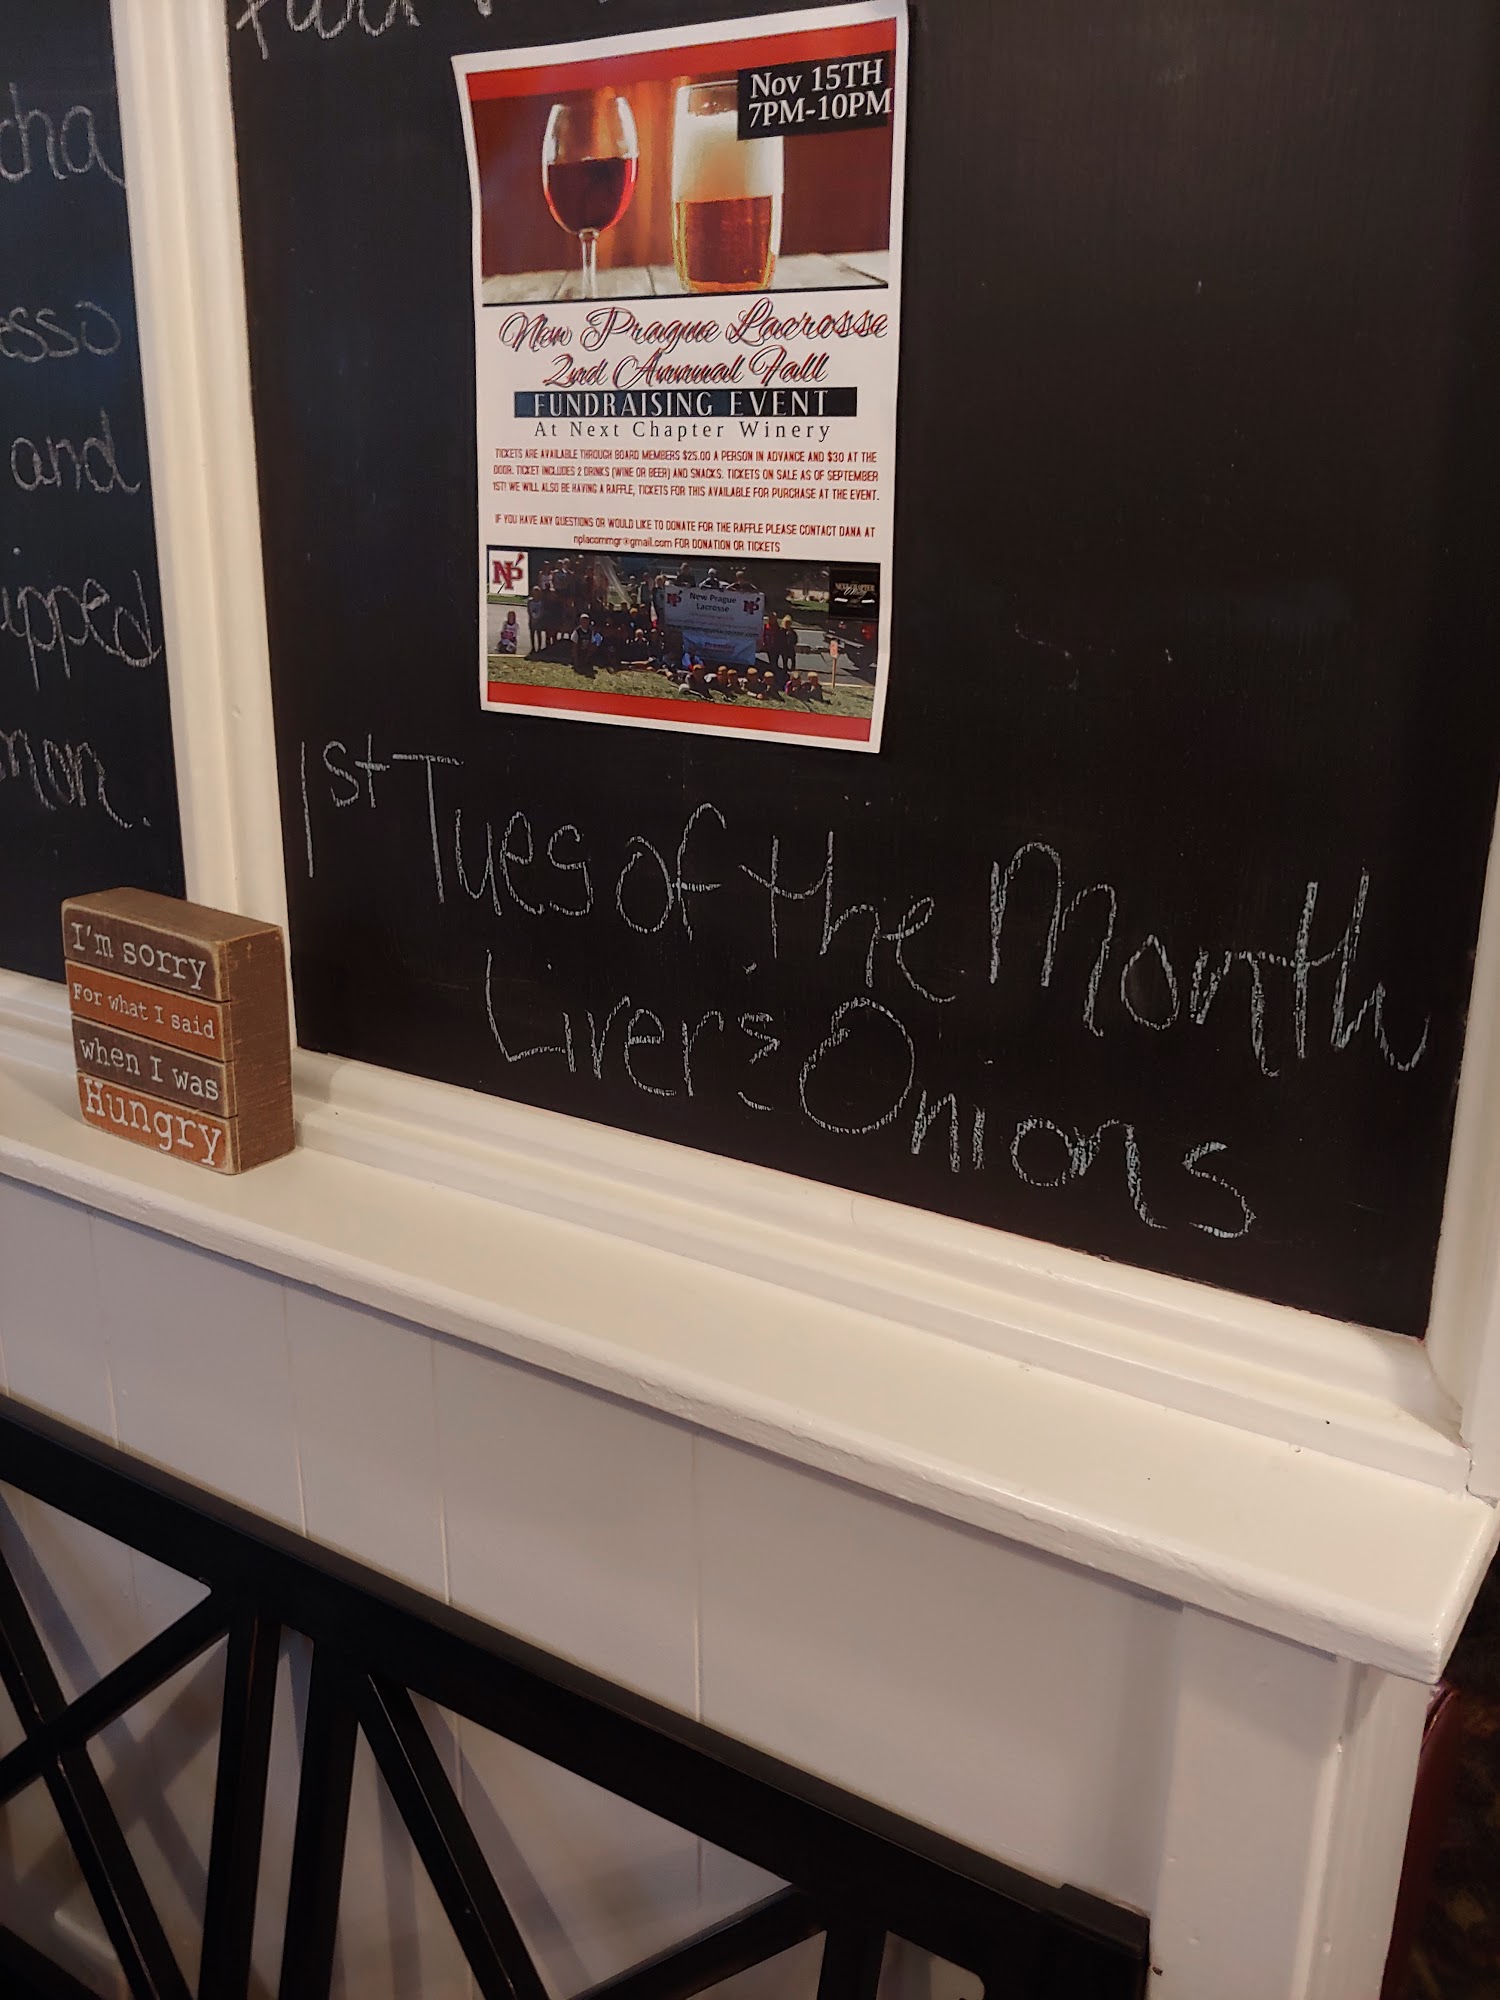 cha
esso
and
ipped
mon.
Nov 15TH
7PM-10PM
New Prague Lacrosse
2nd Annual Fall
FUNDRAISING EVENT
At Next Chapter Winery
TICKETS ARE AVAILABLE THROUGH BOARD MEMBERS $25.00 A PERSON IN ADVANCE AND $30 AT THE
DOOR. TICKET INCLUDES 2 DRINKS (WINE OR BEER) AND SNACKS. TICKETS ON SALE AS OF SEPTEMBER
1ST! WE WILL ALSO BE HAVING A RAFFLE, TICKETS FOR THIS AVAILABLE FOR PURCHASE AT THE EVENT.
IF YOU HAVE ANY QUESTIONS OR WOULD LIKE TO DONATE FOR THE RAFFLE PLEASE CONTACT DANA AT
nplacommgr@gmail.com FOR DONATION OR TICKETS
NP
NP New Prague NP
Lacrosse
NEXT CHAPTER
1st Tues of the Month
Liver & Onions
I'm sorry
For what I said
when I was
Hungry